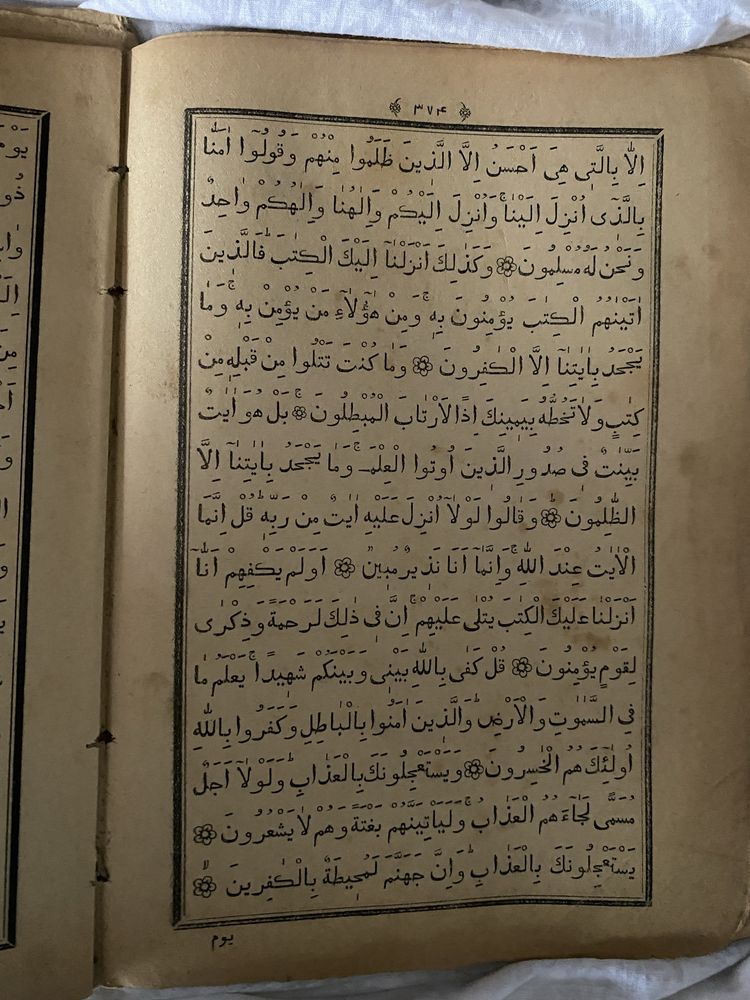 ٣٧۴
اِلَّا بِالَّتٖى هِىَ اَحْسَنُ اِلَّا الَّذٖينَ ظَلَمُوا مِنْهُمْ وَقُولُوٓا اٰمَنَّا
بِالَّذٖٓى اُنْزِلَ اِلَيْنَا وَاُنْزِلَ اِلَيْكُمْ وَاِلٰهُنَا وَاِلٰهُكُمْ وَاحِدٌ
وَنَحْنُ لَهُ مُسْلِمُونَ ۞ وَكَذٰلِكَ اَنْزَلْنَٓا اِلَيْكَ الْكِتٰبَۜ فَالَّذٖينَ
اٰتَيْنٰهُمُ الْكِتٰبَ يُؤْمِنُونَ بِهٖۚ وَمِنْ هٰٓؤُ۬لَٓاءِ مَنْ يُؤْمِنُ بِهٖۚ وَمَا
يَجْحَدُ بِاٰيٰتِنَٓا اِلَّا الْكٰفِرُونَ ۞ وَمَا كُنْتَ تَتْلُوا مِنْ قَبْلِهٖ مِنْ
كِتٰبٍ وَلَا تَخُطُّهُ بِيَمٖينِكَ اِذًا لَارْتَابَ الْمُبْطِلُونَ ۞ بَلْ هُوَ اٰيٰتٌ
بَيِّنٰتٌ فٖى صُدُورِ الَّذٖينَ اُو۫تُوا الْعِلْمَۚ وَمَا يَجْحَدُ بِاٰيٰتِنَٓا اِلَّا
الظّٰلِمُونَ ۞ وَقَالُوا لَوْلَٓا اُنْزِلَ عَلَيْهِ اٰيٰتٌ مِنْ رَبِّهٖۜ قُلْ اِنَّمَا
الْاٰيٰتُ عِنْدَ اللّٰهِۚ وَاِنَّمَٓا اَنَا۬ نَذٖيرٌ مُبٖينٌ ۞ اَوَلَمْ يَكْفِهِمْ اَنَّٓا
اَنْزَلْنَا عَلَيْكَ الْكِتٰبَ يُتْلٰى عَلَيْهِمْۚ اِنَّ فٖى ذٰلِكَ لَرَحْمَةً وَذِكْرٰى
لِقَوْمٍ يُؤْمِنُونَ ۞ قُلْ كَفٰى بِاللّٰهِ بَيْنٖى وَبَيْنَكُمْ شَهٖيدًاۚ يَعْلَمُ مَا
فِى السَّمٰوٰتِ وَالْاَرْضِۜ وَالَّذٖينَ اٰمَنُوا بِالْبَاطِلِ وَكَفَرُوا بِاللّٰهِ
اُو۬لٰٓئِكَ هُمُ الْخٰسِرُونَ ۞ وَيَسْتَعْجِلُونَكَ بِالْعَذَابِۜ وَلَوْلَٓا اَجَلٌ
مُسَمًّى لَجَٓاءَهُمُ الْعَذَابُۚ وَلَيَاْتِيَنَّهُمْ بَغْتَةً وَهُمْ لَا يَشْعُرُونَ ۞
يَسْتَعْجِلُونَكَ بِالْعَذَابِۜ وَاِنَّ جَهَنَّمَ لَمُحٖيطَةٌ بِالْكٰفِرٖينَ ۞
يوم